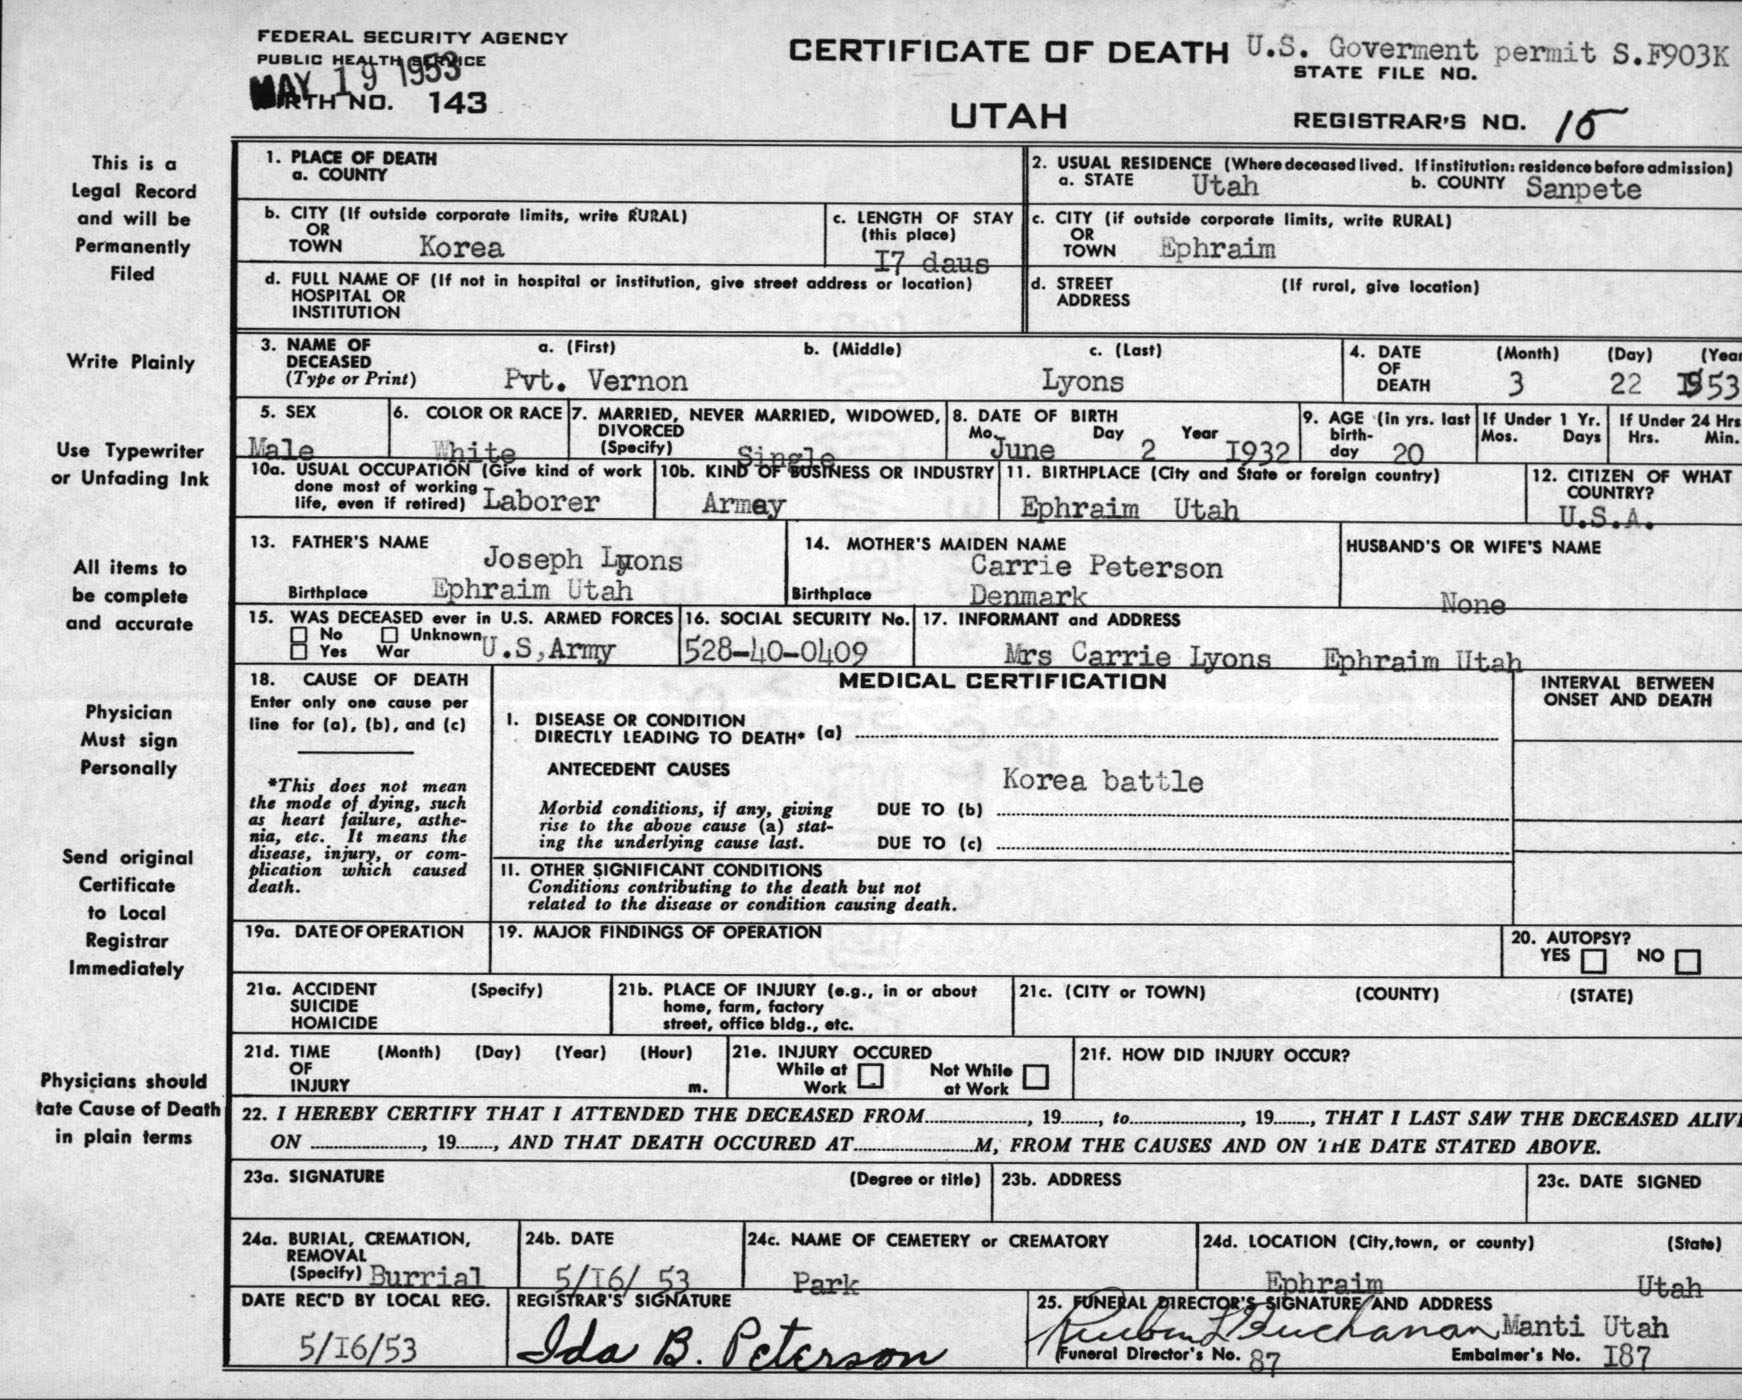 FEDERAL SECURITY AGENCY
PUBLIC HEALTH SERVICE
MAY 19 1953
BIRTH NO. 143
CERTIFICATE OF DEATH
UTAH
U.S. Goverment permit S.F903K
STATE FILE NO.
REGISTRAR'S NO. 15
This is a
Legal Record
and will be
Permanently
Filed
Write Plainly
Use Typewriter
or Unfading Ink
All items to
be complete
and accurate
Physician
Must sign
Personally
Send original
Certificate
to Local
Registrar
Immediately
Physicians should
tate Cause of Death
in plain terms
1. PLACE OF DEATH
a. COUNTY
2. USUAL RESIDENCE (Where deceased lived. If institution: residence before admission)
a. STATE Utah b. COUNTY Sanpete
b. CITY (If outside corporate limits, write RURAL)
OR
TOWN Korea
c. LENGTH OF STAY
(this place)
I7 daus
c. CITY (if outside corporate limits, write RURAL)
OR
TOWN Ephraim
d. FULL NAME OF (If not in hospital or institution, give street address or location)
HOSPITAL OR
INSTITUTION
d. STREET (If rural, give location)
ADDRESS
3. NAME OF a. (First) b. (Middle) c. (Last)
DECEASED
(Type or Print) Pvt. Vernon Lyons
4. DATE (Month) (Day) (Year
OF
DEATH 3 22 1953
5. SEX
Male
6. COLOR OR RACE
White
7. MARRIED, NEVER MARRIED, WIDOWED,
DIVORCED
(Specify) Single
8. DATE OF BIRTH
Mo. Day Year
June 2 I932
9. AGE (in yrs. last
birth-
day 20
If Under 1 Yr.
Mos. Days
If Under 24 Hrs
Hrs. Min.
10a. USUAL OCCUPATION (Give kind of work
done most of working
life, even if retired) Laborer
10b. KIND OF BUSINESS OR INDUSTRY
Armey
11. BIRTHPLACE (City and State or foreign country)
Ephraim Utah
12. CITIZEN OF WHAT
COUNTRY?
U.S.A.
13. FATHER'S NAME
Joseph Lyons
Birthplace Ephraim Utah
14. MOTHER'S MAIDEN NAME
Carrie Peterson
Birthplace Denmark
HUSBAND'S OR WIFE'S NAME
None
15. WAS DECEASED ever in U.S. ARMED FORCES
No Unknown
Yes War U.S,Army
16. SOCIAL SECURITY No.
528-40-0409
17. INFORMANT and ADDRESS
Mrs Carrie Lyons Ephraim Utah
18. CAUSE OF DEATH
Enter only one cause per
line for (a), (b), and (c)
*This does not mean
the mode of dying, such
as heart failure, asthe-
nia, etc. It means the
disease, injury, or com-
plication which caused
death.
MEDICAL CERTIFICATION
INTERVAL BETWEEN
ONSET AND DEATH
I. DISEASE OR CONDITION
DIRECTLY LEADING TO DEATH* (a)
ANTECEDENT CAUSES
Korea battle
Morbid conditions, if any, giving DUE TO (b)
rise to the above cause (a) stat-
ing the underlying cause last. DUE TO (c)
II. OTHER SIGNIFICANT CONDITIONS
Conditions contributing to the death but not
related to the disease or condition causing death.
19a. DATE OF OPERATION
19. MAJOR FINDINGS OF OPERATION
20. AUTOPSY?
YES NO
21a. ACCIDENT (Specify)
SUICIDE
HOMICIDE
21b. PLACE OF INJURY (e.g., in or about
home, farm, factory
street, office bldg., etc.
21c. (CITY or TOWN) (COUNTY) (STATE)
21d. TIME (Month) (Day) (Year) (Hour)
OF
INJURY m.
21e. INJURY OCCURED
While at Not While
Work at Work
21f. HOW DID INJURY OCCUR?
22. I HEREBY CERTIFY THAT I ATTENDED THE DECEASED FROM, 19, to, 19, THAT I LAST SAW THE DECEASED ALIVE
ON, 19, AND THAT DEATH OCCURED AT M, FROM THE CAUSES AND ON THE DATE STATED ABOVE.
23a. SIGNATURE (Degree or title)
23b. ADDRESS
23c. DATE SIGNED
24a. BURIAL, CREMATION,
REMOVAL
(Specify) Burrial
24b. DATE
5/I6/ 53
24c. NAME OF CEMETERY or CREMATORY
Park
24d. LOCATION (City,town, or county) (State)
Ephraim Utah
DATE REC'D BY LOCAL REG.
5/I6/53
REGISTRAR'S SIGNATURE
Ida B. Peterson
25. FUNERAL DIRECTOR'S SIGNATURE AND ADDRESS
Reuben L Buchanan Manti Utah
Funeral Director's No. 87 Embalmer's No. I87